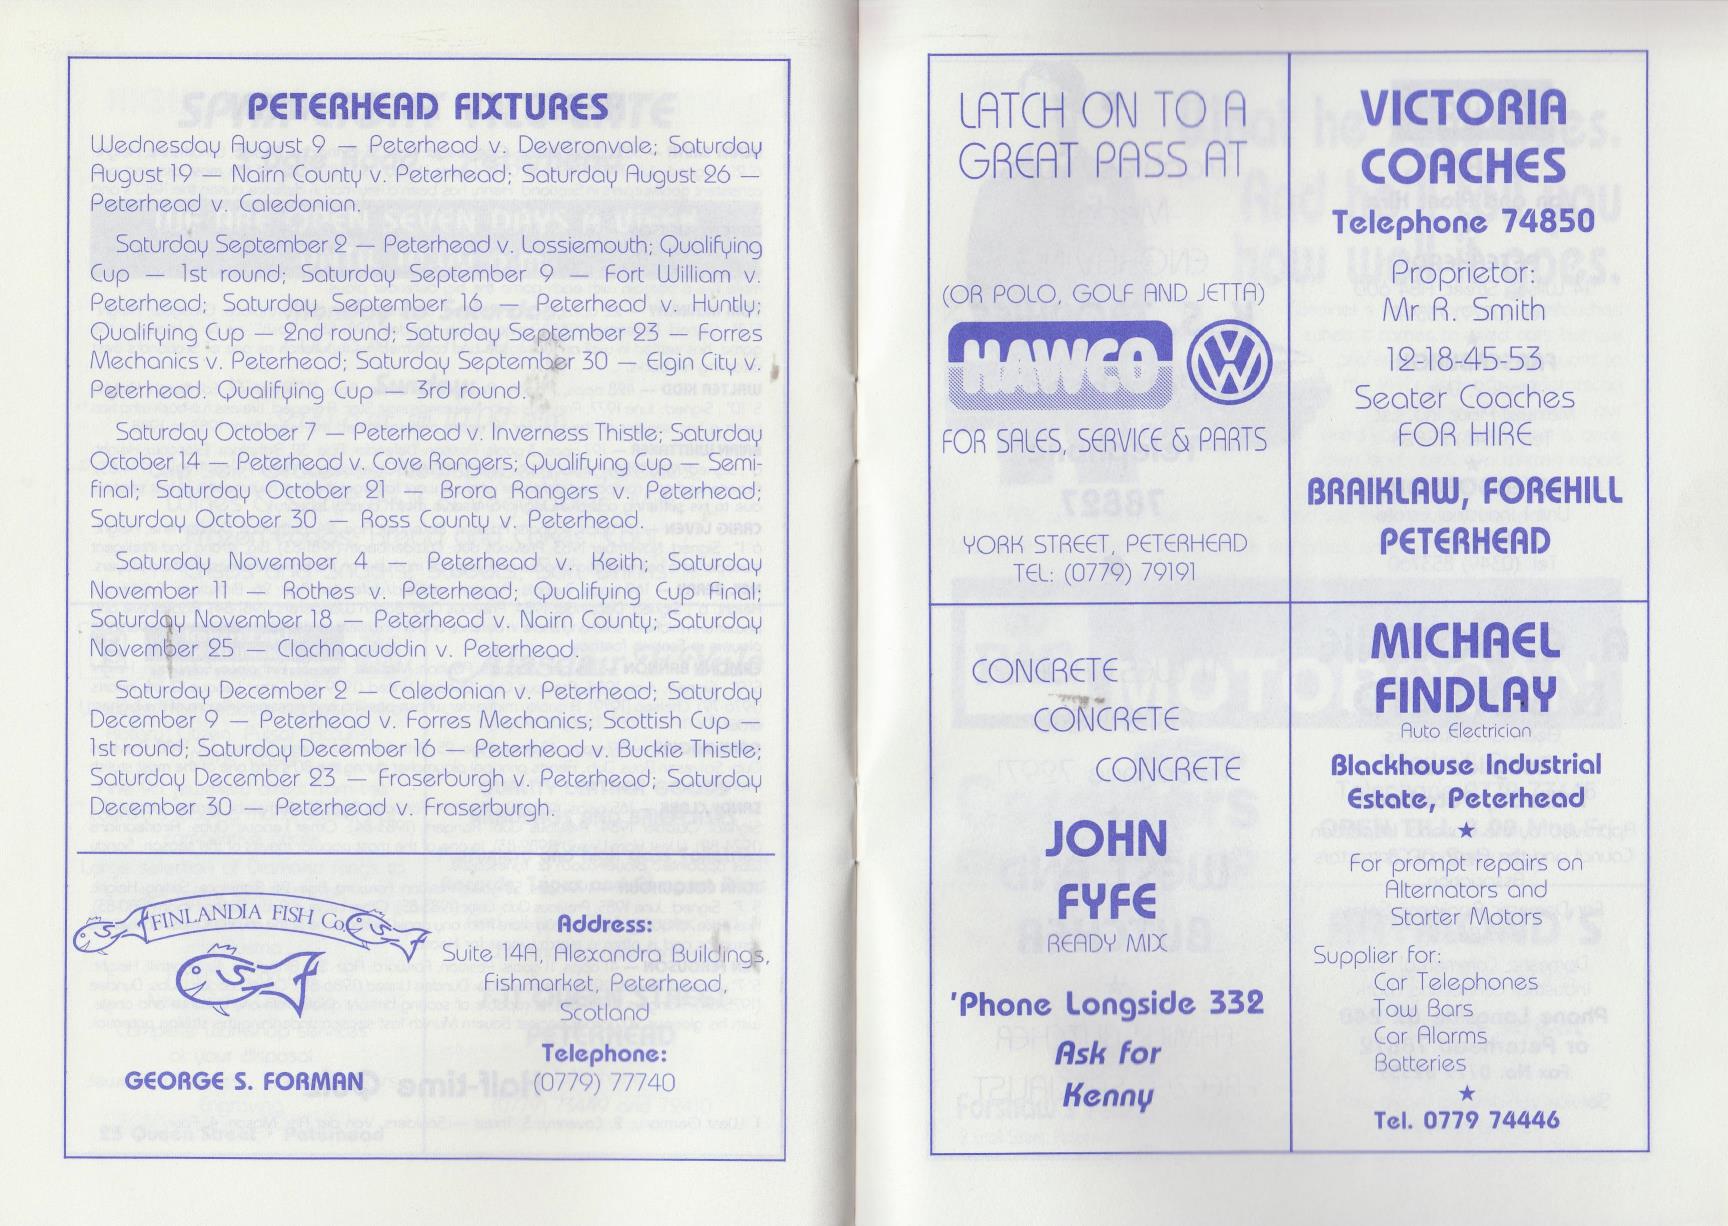 PETERHEAD FIXTURES
Wednesday August 9 — Peterhead v. Deveronvale; Saturday
August 19 — Nairn County v. Peterhead; Saturday August 26 —
Peterhead v. Caledonian.
Saturday September 2 — Peterhead v. Lossiemouth; Qualifying
Cup — 1st round; Saturday September 9 — Fort William v.
Peterhead; Saturday September 16 — Peterhead v. Huntly;
Qualifying Cup — 2nd round; Saturday September 23 — Forres
Mechanics v. Peterhead; Saturday September 30 — Elgin City v.
Peterhead. Qualifying Cup — 3rd round.
Saturday October 7 — Peterhead v. Inverness Thistle; Saturday
October 14 — Peterhead v. Cove Rangers; Qualifying Cup — Semi-
final; Saturday October 21 — Brora Rangers v. Peterhead;
Saturday October 30 — Ross County v. Peterhead.
Saturday November 4 — Peterhead v. Keith; Saturday
November 11 — Rothes v. Peterhead; Qualifying Cup Final;
Saturday November 18 — Peterhead v. Nairn County; Saturday
November 25 — Clachnacuddin v. Peterhead.
Saturday December 2 — Caledonian v. Peterhead; Saturday
December 9 — Peterhead v. Forres Mechanics; Scottish Cup —
1st round; Saturday December 16 — Peterhead v. Buckie Thistle;
Saturday December 23 — Fraserburgh v. Peterhead; Saturday
December 30 — Peterhead v. Fraserburgh.
FINLANDIA FISH Co.
GEORGE S. FORMAN
Address:
Suite 14A, Alexandra Buildings,
Fishmarket, Peterhead,
Scotland
Telephone:
(0779) 77740
LATCH ON TO A
GREAT PASS AT
(OR POLO, GOLF AND JETTA)
HAWCO
VW
FOR SALES, SERVICE & PARTS
YORK STREET, PETERHEAD
TEL: (0779) 79191
VICTORIA
COACHES
Telephone 74850
Proprietor:
Mr R. Smith
12-18-45-53
Seater Coaches
FOR HIRE
BRAIKLAW, FOREHILL
PETERHEAD
CONCRETE
CONCRETE
CONCRETE
JOHN
FYFE
READY MIX
'Phone Longside 332
Ask for
Kenny
MICHAEL
FINDLAY
Auto Electrician
Blackhouse Industrial
Estate, Peterhead
★
For prompt repairs on
Alternators and
Starter Motors
Supplier for:
Car Telephones
Tow Bars
Car Alarms
Batteries
★
Tel. 0779 74446